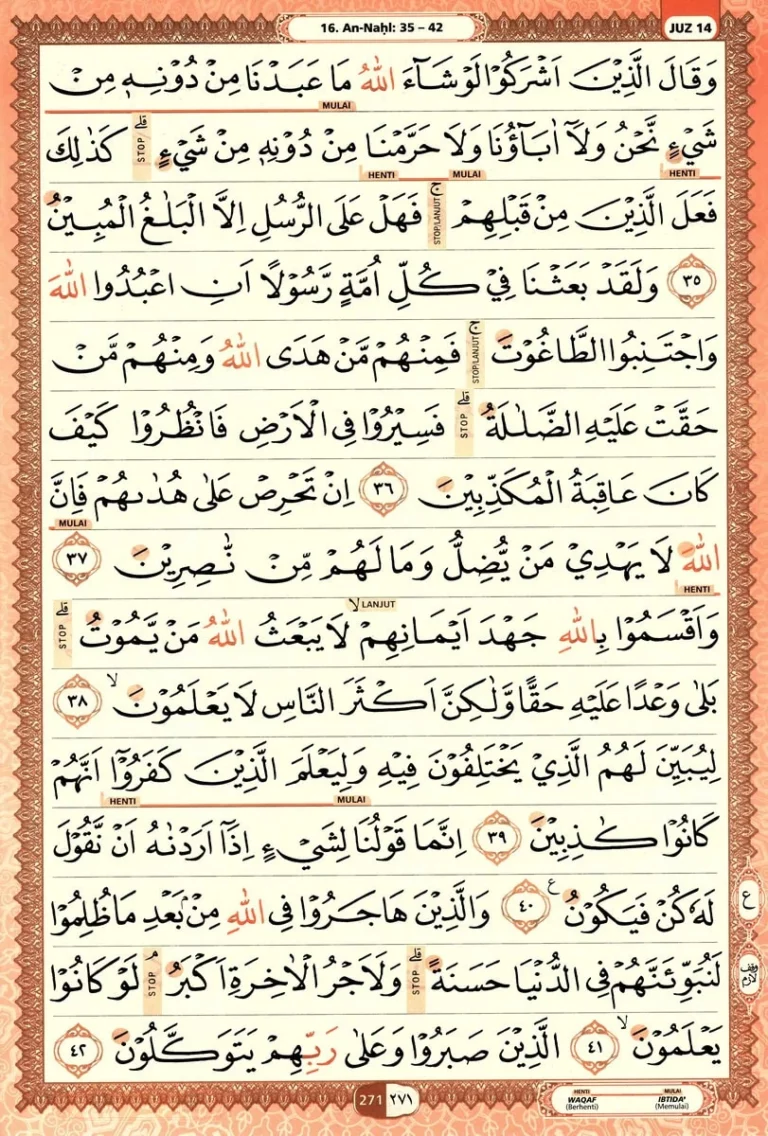 16. An-Naḥl: 35 – 42
JUZ 14
وَقَالَ الَّذِيْنَ اَشْرَكُوْا لَوْ شَاۤءَ اللّٰهُ مَا عَبَدْنَا مِنْ دُوْنِهٖ مِنْ
MULAI
شَيْءٍ نَّحْنُ وَلَآ اٰبَاۤؤُنَا وَلَا حَرَّمْنَا مِنْ دُوْنِهٖ مِنْ شَيْءٍ ۗ كَذٰلِكَ
STOP
HENTI MULAI HENTI
فَعَلَ الَّذِيْنَ مِنْ قَبْلِهِمْ ۚ فَهَلْ عَلَى الرُّسُلِ اِلَّا الْبَلٰغُ الْمُبِيْنُ
STOP/LANJUT
٣٥ وَلَقَدْ بَعَثْنَا فِيْ كُلِّ اُمَّةٍ رَّسُوْلًا اَنِ اعْبُدُوا اللّٰهَ
وَاجْتَنِبُوا الطَّاغُوْتَ ۚ فَمِنْهُمْ مَّنْ هَدَى اللّٰهُ وَمِنْهُمْ مَّنْ
STOP/LANJUT
حَقَّتْ عَلَيْهِ الضَّلٰلَةُ ۗ فَسِيْرُوْا فِى الْاَرْضِ فَانْظُرُوْا كَيْفَ
STOP
كَانَ عَاقِبَةُ الْمُكَذِّبِيْنَ ٣٦ اِنْ تَحْرِصْ عَلٰى هُدٰىهُمْ فَاِنَّ
MULAI
اللّٰهَ لَا يَهْدِيْ مَنْ يُّضِلُّ وَمَا لَهُمْ مِّنْ نّٰصِرِيْنَ ٣٧
HENTI
LANJUT
وَاَقْسَمُوْا بِاللّٰهِ جَهْدَ اَيْمَانِهِمْ ۙ لَا يَبْعَثُ اللّٰهُ مَنْ يَّمُوْتُ ۗ
STOP
بَلٰى وَعْدًا عَلَيْهِ حَقًّا وَّلٰكِنَّ اَكْثَرَ النَّاسِ لَا يَعْلَمُوْنَ ۙ ٣٨
لِيُبَيِّنَ لَهُمُ الَّذِيْ يَخْتَلِفُوْنَ فِيْهِ وَلِيَعْلَمَ الَّذِيْنَ كَفَرُوْٓا اَنَّهُمْ
HENTI MULAI
كَانُوْا كٰذِبِيْنَ ٣٩ اِنَّمَا قَوْلُنَا لِشَيْءٍ اِذَآ اَرَدْنٰهُ اَنْ نَّقُوْلَ
لَهٗ كُنْ فَيَكُوْنُ ࣖ ٤٠ وَالَّذِيْنَ هَاجَرُوْا فِى اللّٰهِ مِنْۢ بَعْدِ مَا ظُلِمُوْا
ع
لَنُبَوِّئَنَّهُمْ فِى الدُّنْيَا حَسَنَةً ۗ وَلَاَجْرُ الْاٰخِرَةِ اَكْبَرُ ۘ لَوْ كَانُوْا
STOP STOP
وقف لازم
يَعْلَمُوْنَ ۙ ٤١ الَّذِيْنَ صَبَرُوْا وَعَلٰى رَبِّهِمْ يَتَوَكَّلُوْنَ ٤٢
271 ٢٧١
HENTI MULAI
WAQAF IBTIDA'
(Berhenti) (Memulai)